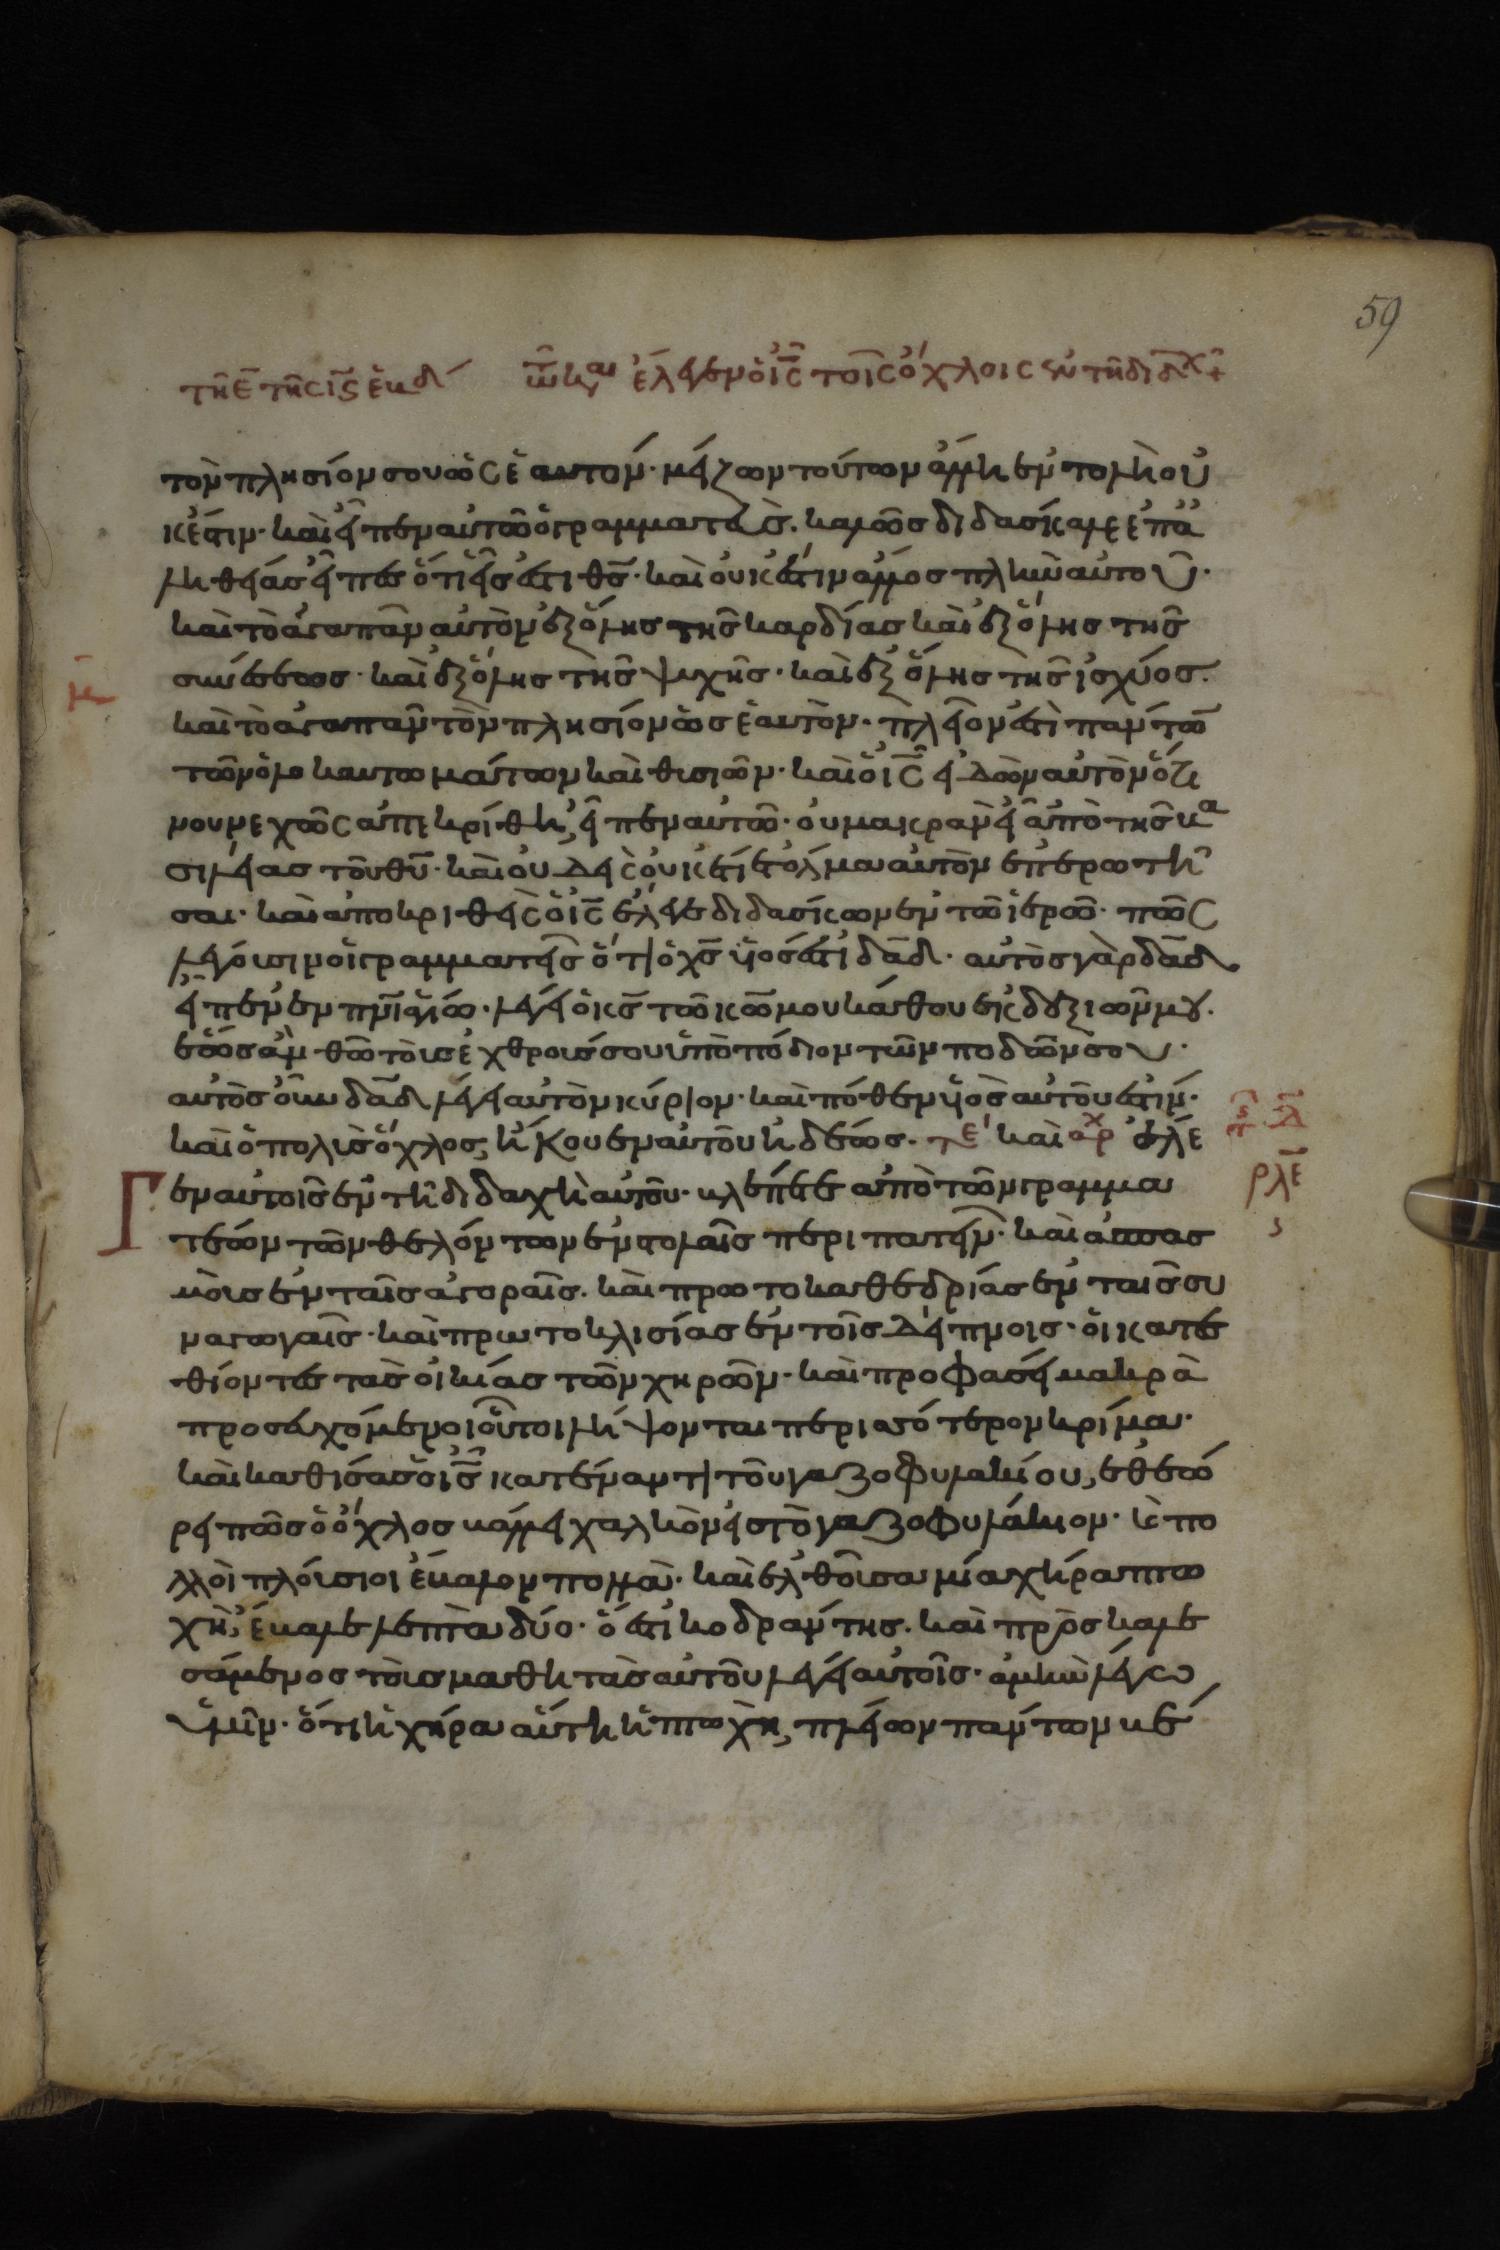 59
τῆ ε̄ τῆς ις̄ ἑβδ τῶ κ αι ἔλεγεν ὁ ις̄ τοῖς ὄχλοις ἐν τῆ διδαχ
τὸν πλησίον σου ὡς ἑαυτόν· μείζων τούτων ἄλλη ἐντολὴ οὐ
κ ἔστιν· καὶ εἶπεν αὐτῶ ὁ γραμματεὺς· καλῶς διδάσκαλε ἐπ ἀ
ληθείας εἶπες ὅτι εἷς ἐστι θς̄· καὶ οὐκ ἔστιν ἄλλος πλὴν αὐτοῦ·
καὶ τὸ ἀγαπᾶν αὐτὸν ἐξ ὅλης τῆς καρδίας καὶ ἐξ ὅλης τῆς
συνέσεως· καὶ ἐξ ὅλης τῆς ψυχῆς· καὶ ἐξ ὅλης τῆς ἰσχύος·
καὶ τὸ ἀγαπᾶν τὸν πλησίον ὡς ἑαυτὸν· πλεῖον ἐστὶ πάντων
τῶν ὁλοκαυτωμάτων καὶ θυσιῶν· καὶ ὁ ις̄ εἰδὼν αὐτὸν ὅτι
νουνεχῶς ἀπεκρίθη, εἶπεν αὐτῶ· οὐ μακρὰν εἶ ἀπὸ τῆς βα
σιλείας τοῦ θῡ· καὶ οὐδεὶς οὐκέτι ἐτόλμα αὐτὸν ἐπερωτῆ
σαι· καὶ ἀποκριθεὶς ὁ ις̄ ἔλεγε διδάσκων ἐν τῶ ἱερῶ· πῶς
λέγουσιν οἱ γραμματεῖς ὅτι ὁ χς̄ υἱός ἐστι δαδ̄· αὐτὸς γὰρ δαδ̄
εἶπεν ἐν πνι̅ ἁγίω· λέγει ὁ κς̄ τῶ κω̄ μου κάθου ἐκ δεξιῶν μου·
ἕως ἂν θῶ τοὺς ἐχθρούς σου ὑποπόδιον τῶν ποδῶν σου·
αὐτὸς οὖν δαδ̄ λέγει αὐτὸν κύριον· καὶ πόθεν υἱὸς αὐτοῦ ἐστίν·
καὶ ὁ πολὺς ὄχλος, ἤκουεν αὐτοῦ ἡδέως· τε καὶ αρχ ἔλε
γεν αὐτοῖς ἐν τῆ διδαχῆ αὐτοῦ· βλέπετε ἀπὸ τῶν γραμμα
τέων τῶν θελόντων ἐν στολαῖς περιπατεῖν· καὶ ἀσπασ
μοὺς ἐν ταῖς ἀγοραῖς· καὶ πρωτοκαθεδρίας ἐν ταῖς συ
ναγωγαῖς· καὶ πρωτοκλισίας ἐν τοῖς δείπνοις· οἱ κατεσ
θίοντες τὰς οἰκίας τῶν χηρῶν· καὶ προφάσει μακρὰ
προσευχόμενοι οὗτοι λήψονται περισσότερον κρίμα·
καὶ καθίσας ὁ ις̄ κατέναντι τοῦ γαζοφυλακίου, ἐθεώ
ρει πῶς ὁ ὄχλος βάλλει χαλκὸν εἰς τὸ γαζοφυλάκιον· καὶ πο
λλοὶ πλούσιοι ἔβαλον πολλὰ· καὶ ἐλθοῦσα μία χήρα πτω
χὴ, ἔβαλε λεπτὰ δύο· ὅ ἐστι κοδράντης· καὶ προσκαλε
σάμενος τοὺς μαθητὰς αὐτοῦ λέγει αὐτοῖς· ἀμὴν λέγω
ὑμῖν· ὅτι ἡ χήρα αὕτη ἡ πτωχὴ, πλεῖον πάντων βέ
ρλε
ς